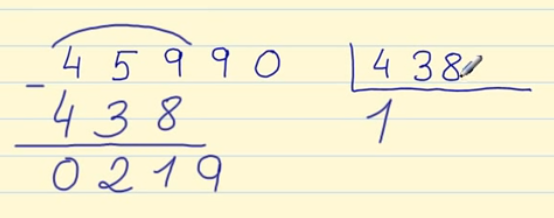 45990 438
- 438 1
0219